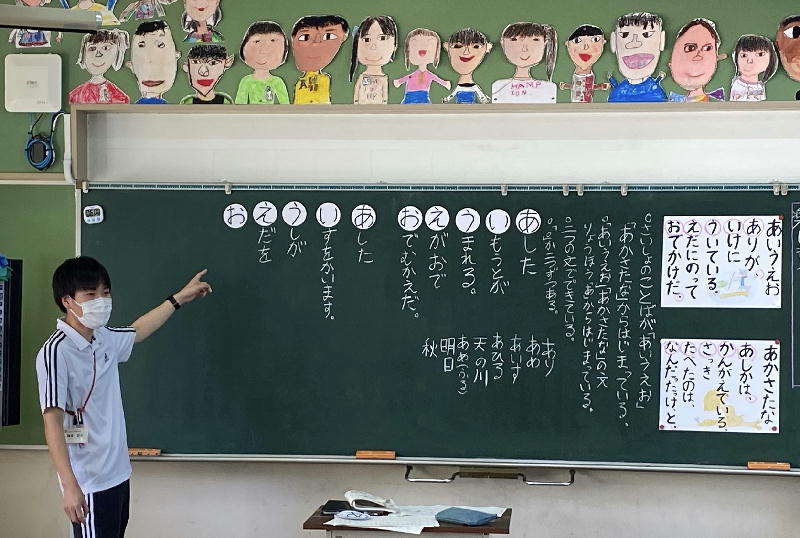 あいうえお
ありが、
いけに
ういている。
えだにのって
おでかけだ。
あかさたな
あしかは、
かんがえている。
さっき
たべたのは、
なんだったけ、と。
○さいしょのことばが「あいうえお」
「あかさたな」からはじまっている。
○「あいうえお」「あかさたな」の文
りょうほう「あ」からはじまっている。
○二つの文でできている。
あした
いもうとが
うまれる。
えがおで
おでむかえだ。
あり
あめ
あいす
あひる
天の川
あめ(ふる)
明日
秋
あした
いすをかいます。
うしが
えだを
お